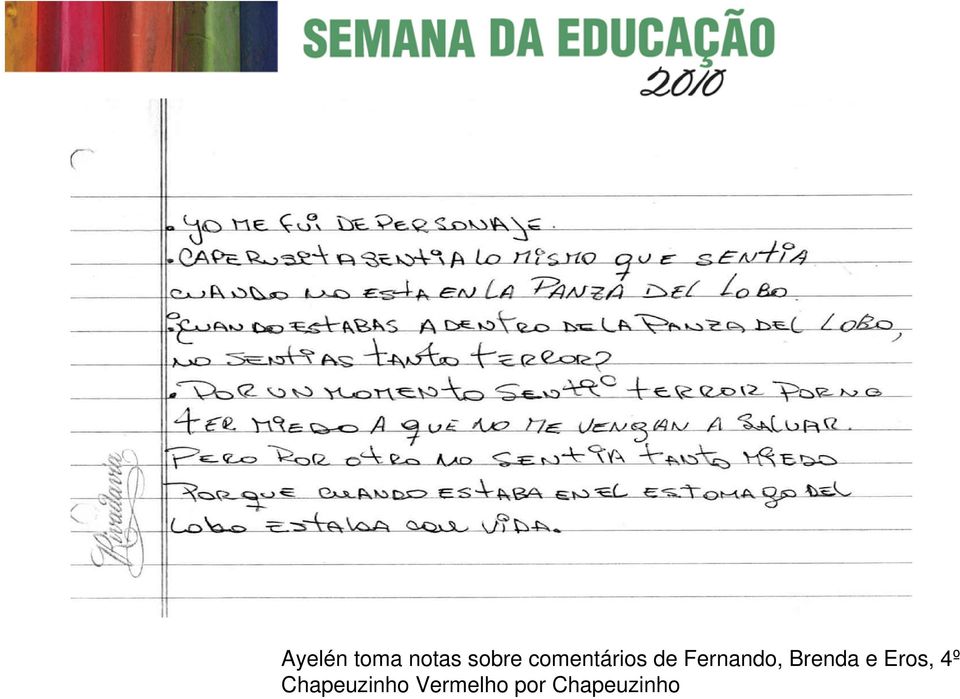 SEMANA DA EDUCAÇÃO
2010
• YO ME FUI DE PERSONAJE.
• CAPERUSETA SENTIA LO MISMO QUE SENTIA
CUANDO NO ESTA EN LA PANZA DEL LOBO
• ¿CUANDO ESTABAS ADENTRO DE LA PANZA DEL LOBO,
NO SENTIAS TANTO TERROR?
• POR UN MOMENTO SENTIO TERROR POR NO
TER MIEDO A QUE NO ME VENGAN A SALVAR.
PERO POR OTRO NO SENTIA TANTO MIEDO
PORQUE CUANDO ESTABA EN EL ESTOMAGO DEL
LOBO ESTABA CON VIDA.
Rivadavia
Ayelén toma notas sobre comentários de Fernando, Brenda e Eros, 4º
Chapeuzinho Vermelho por Chapeuzinho